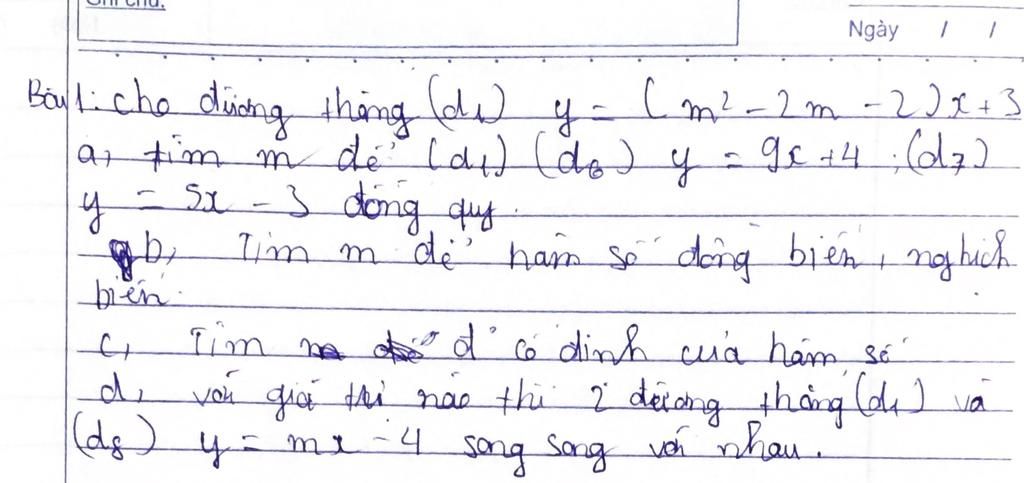 Ghi chú:
Ngày / /
Bài 1: cho đường thẳng (d₁) y = (m² - 2m - 2)x + 3
a, tìm m để (d₁) (d₆) y = 9x + 4 ; (d₇)
y = 5x - 3 đồng quy.
b, Tìm m để hàm số đồng biến, nghịch
biến.
c, Tìm đ' cố định của hàm số
d, với giá trị nào thì 2 đường thẳng (d₁) và
(d₈) y = mx - 4 song song với nhau.